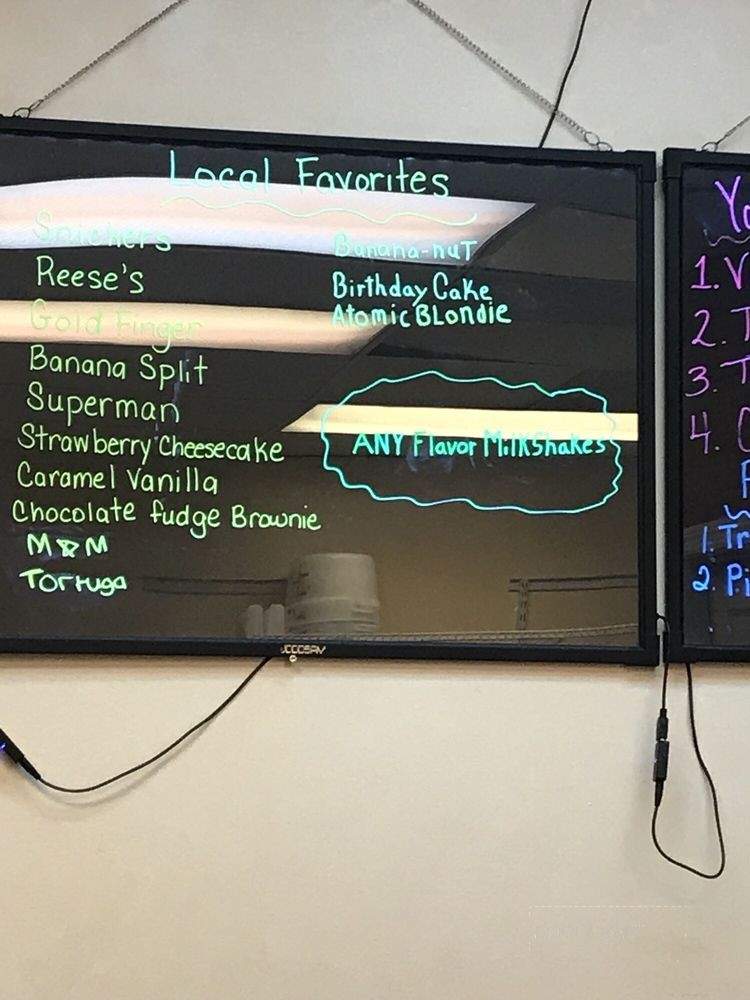 Local Favorites
Snickers
Reese's
Gold Finger
Banana Split
Superman
Strawberry Cheesecake
Caramel Vanilla
Chocolate fudge Brownie
M&M
Tortuga
Banana-nut
Birthday Cake
Atomic BLondie
ANY Flavor MilkShakes
1. V
2. T
3. T
4.
1. Tr
2. Pi